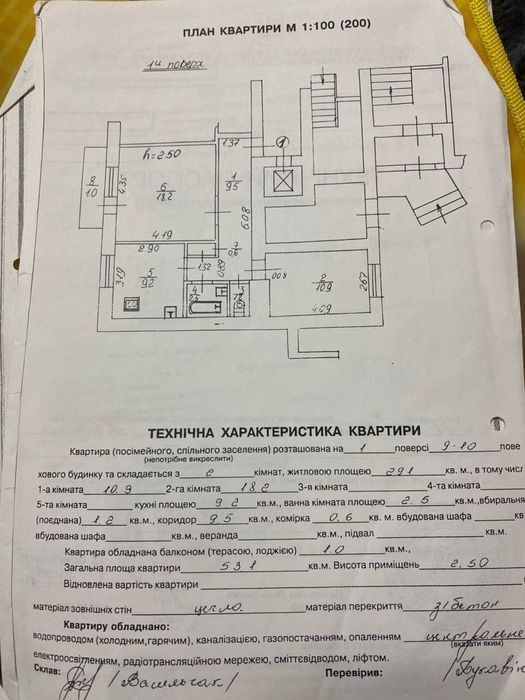 ПЛАН КВАРТИРИ М 1:100 (200)
1й поверх
h=2.50
1.37
1
9.5
1
8
1.0
4.35
6
18.2
6.08
4.19
2.90
3.19
5
9.2
1.32
0.89
7
0.6
0.08
2
10.9
2.67
4
2.5
3
1.2
4.09
ТЕХНІЧНА ХАРАКТЕРИСТИКА КВАРТИРИ
Квартира (посімейного, спільного заселення) розташована на 1 поверсі 9-10 пове
(непотрібне викреслити)
хового будинку та складається з 2 кімнат, житловою площею 29.1 кв. м., в тому числ
1-а кімната 10.9 2-га кімната 18.2 3-я кімната 4-та кімната
5-та кімната кухні площею 9.2 кв.м., ванна кімната площею 2.5 кв.м.,вбиральня
(поєднана) 1.2 кв.м., коридор 9.5 кв.м., комірка 0.6 кв. м. вбудована шафа кв
вбудована шафа кв.м., веранда кв.м., підвал кв.м.
Квартира обладнана балконом (терасою, лоджією) 1.0 кв.м.,
Загальна площа квартири 53.1 кв.м. Висота приміщень 2.50
Відновлена вартість квартири
матеріал зовнішніх стін цегла матеріал перекриття з/бетон
Квартиру обладнано:
водопроводом (холодним,гарячим), каналізацією, газопостачанням, опаленням центральне
(вказати яким)
електроосвітленням, радіотрансляційною мережею, сміттєвідводом, ліфтом.
Склав: /Васильчак/ Перевірив: